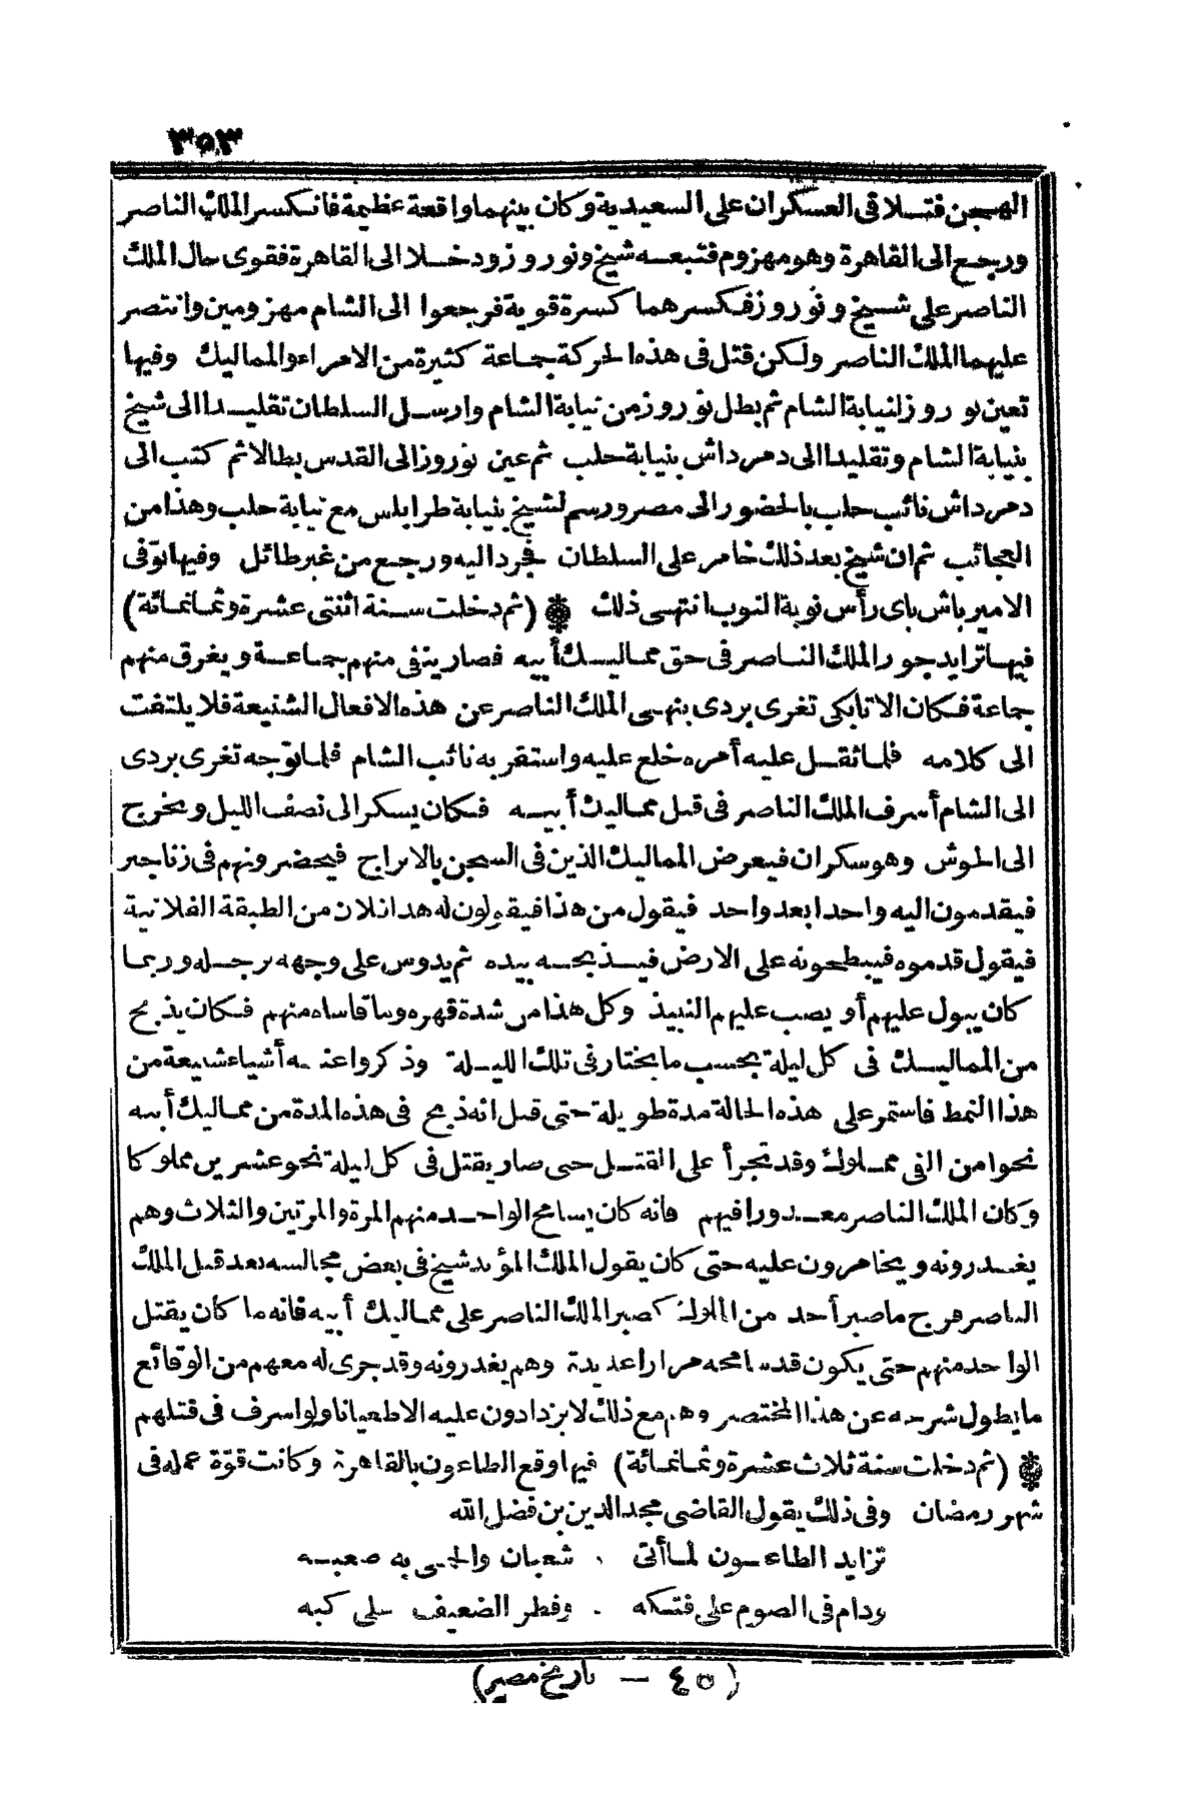 ٣٥٣
الهجن فتلاقى العسكران على السعيدية وكان بينهما واقعة عظيمة فانكسر الملك الناصر
ورجع الى القاهرة وهو مهزوم فتبعه شيخ ونوروز ودخلا الى القاهرة فقوى حال الملك
الناصر على شيخ ونوروز فكسرهما كسرة قوية فرجعوا الى الشام مهزومين وانتصر
عليهما الملك الناصر ولكن قتل فى هذه الحركة جماعة كثيرة من الامراء والمماليك وفيها
تعين نوروز لنيابة الشام ثم بطل نوروز من نيابة الشام وارسل السلطان تقليدا الى شيخ
بنيابة الشام وتقليدا الى دمرداش بنيابة حلب ثم عين نوروز الى القدس بطالا ثم كتب الى
دمرداش نائب حلب بالحضور الى مصر ورسم لشيخ بنيابة طرابلس مع نيابة حلب وهذا من
العجائب ثم ان شيخ بعد ذلك خامر على السلطان فجرد اليه ورجع من غير طائل وفيها توّفى
الامير باش باى رأس نوبة النوب انتهى ذلك (ثم دخلت سنة اثنتى عشرة وثمانمائة)
فيها تزايد جور الملك الناصر فى حق مماليك أبيه فصار ينفى منهم جماعة ويغرق منهم
جماعة فكان الاتابكى تغرى بردى ينهى الملك الناصر عن هذه الافعال الشنيعة فلا يلتفت
الى كلامه فلما ثقل عليه أمره خلع عليه واستقر به نائب الشام فلما توّجه تغرى بردى
الى الشام أسرف الملك الناصر فى قتل مماليك أبيه فكان يسكر الى نصف الليل ويخرج
الى الحوش وهو سكران فيعرض المماليك الذين فى السجن بالابراج فيحضرونهم فى زناجير
فيقدمون اليه واحدا بعد واحد فيقول من هذا فيقولون له هدا فلان من الطبقة الفلانية
فيقول قدموه فيبطحونه على الارض فيذبحه بيده ثم يدوس على وجهه برجله وربما
كان يبول عليهم أو يصب عليهم النبيذ وكل هذا من شدة قهره وما قاساه منهم فكان يذبح
من المماليك فى كل ليلة بحسب ما يختار فى تلك الليلة وذكروا عنه أشياء شنيعة من
هذا النمط فاستمر على هذه الحالة مدة طويلة حتى قيل انه ذبح فى هذه المدة من مماليك أبيه
نحوا من الفى مملوك وقد تجرأ على القتل حتى صار يقتل فى كل ليلة نحو عشرين مملوكا
وكان الملك الناصر معذورا فيهم فانه كان يسامح الواحد منهم المرة والمرتين والثلاث وهم
يغدرونه ويخامرون عليه حتى كان يقول الملك المؤيد شيخ فى بعض مجالسه بعد قتل الملك
الناصر فرج ما صبر أحد من الملوك كصبر الملك الناصر على مماليك أبيه فانه ما كان يقتل
الواحد منهم حتى يكون قد سامحه مرارا عديدة وهم يغدرونه وقد جرى له معهم من الوقائع
ما يطول شرحه عن هذا المختصر وهم مع ذلك لا يزدادون عليه الا طغيانا ولو اسرف فى قتلهم
(ثم دخلت سنة ثلاث عشرة وثمانمائة) فيها وقع الطاعون بالقاهرة وكانت قوّة عمله فى
شهر رمضان وفى ذلك يقول القاضى مجد الدين بن فضل الله
تزايد الطاعون لما أتى . شعبان والحى به صعبه
ودام فى الصوم على فتكه . وفطر الضعيف على كبه
(٤٥ — تاريخ مصر)